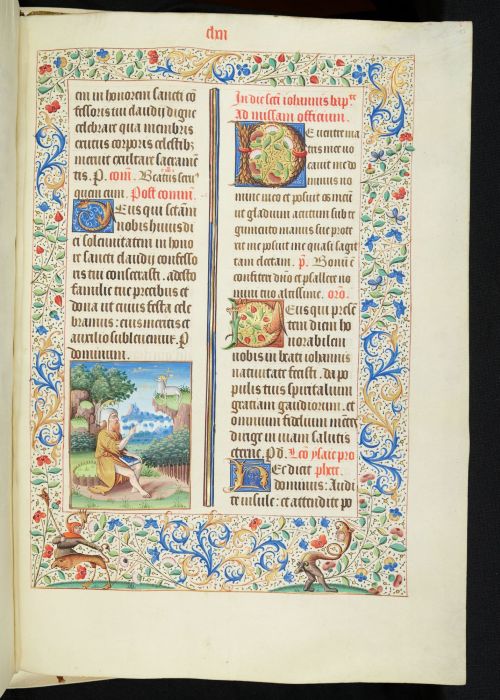 clvii
em in honorem sancti cō
fessoris tui claudij digne
celebrare qua membris
cunctis corporis celestibꝫ
meruit exultare sacramē
tis. P. com̄. Beatus seru᷒
quem cum. Post comm̄.
Deus qui sc̄tam
nobis huius di
ei solenitatem in hono
re sancti claudij confesso
ris tui consecrasti. adesto
familie tue precibus et
dona ut cuius festa cele
bramus: eius meritis et
auxilio subleuemur. P
dominum.
In die sc̄ti iohannis bap.te
Ad missam officium.
De uentre ma
tris mee uo
cauit me do
minus no
mine meo et posuit os meū
ut gladium acutum sub te
gumento manus sue prote
xit me posuit me quasi sagit
tam electam. p̄. Bonū ē
confiteri dn̄o et psallere no
mini tuo altissime. orō.
Deus qui prese
tem diem ho
norabilem
nobis in beati iohannis
natiuitate fecisti. da po
pulis tuis spiritualium
gratiam gaudiorum. et
omnium fidelium mētes
dirige in uiam salutis
eterne. P. d. Lco ysaie pro
Hec dicit phete.
dominus: Audi
te insule: et attendite po